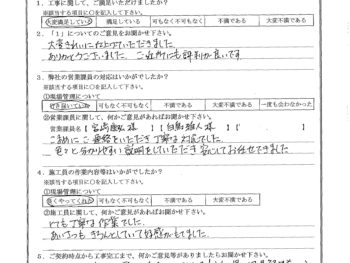 1．工事に関して、ご満足いただけましたか？
※該当する項目に○を記入して下さい。
大変満足している 満足している 可もなく不可もなく 不満である 大変不満である
2．「1」についてのご意見をお聞かせ下さい。
大変きれいに仕上げていただきました
ありがとうございました。ご近所にも評判が良いです
3．弊社の営業課員の対応はいかがでしたか？
※該当する項目に○を記入して下さい。
①現場管理について
行き届いている 可もなく不可もなく 不満である 大変不満である 一度も会わなかった
②営業課員に関して、何かご意見があればお聞かせ下さい。
営業課員名【 様】【 様】【 】
こまめにご連絡をいただき丁寧な対応でした。
色々と分かりやすい説明をしていただき安心してお任せできました
4．施工員の作業内容等はいかがでしたか？
※該当する項目に○を記入して下さい。
①現場管理について
良くやってくれた 可もなく不可もなく 不満である 大変不満である
②施工員に関して、何かご意見があればお聞かせ下さい。
とても丁寧な作業でした。
あいさつもきちんとしていて好感がもてました。
5．ご契約時点から工事完工まで、何かご意見等がありましたらお聞かせ下さい。